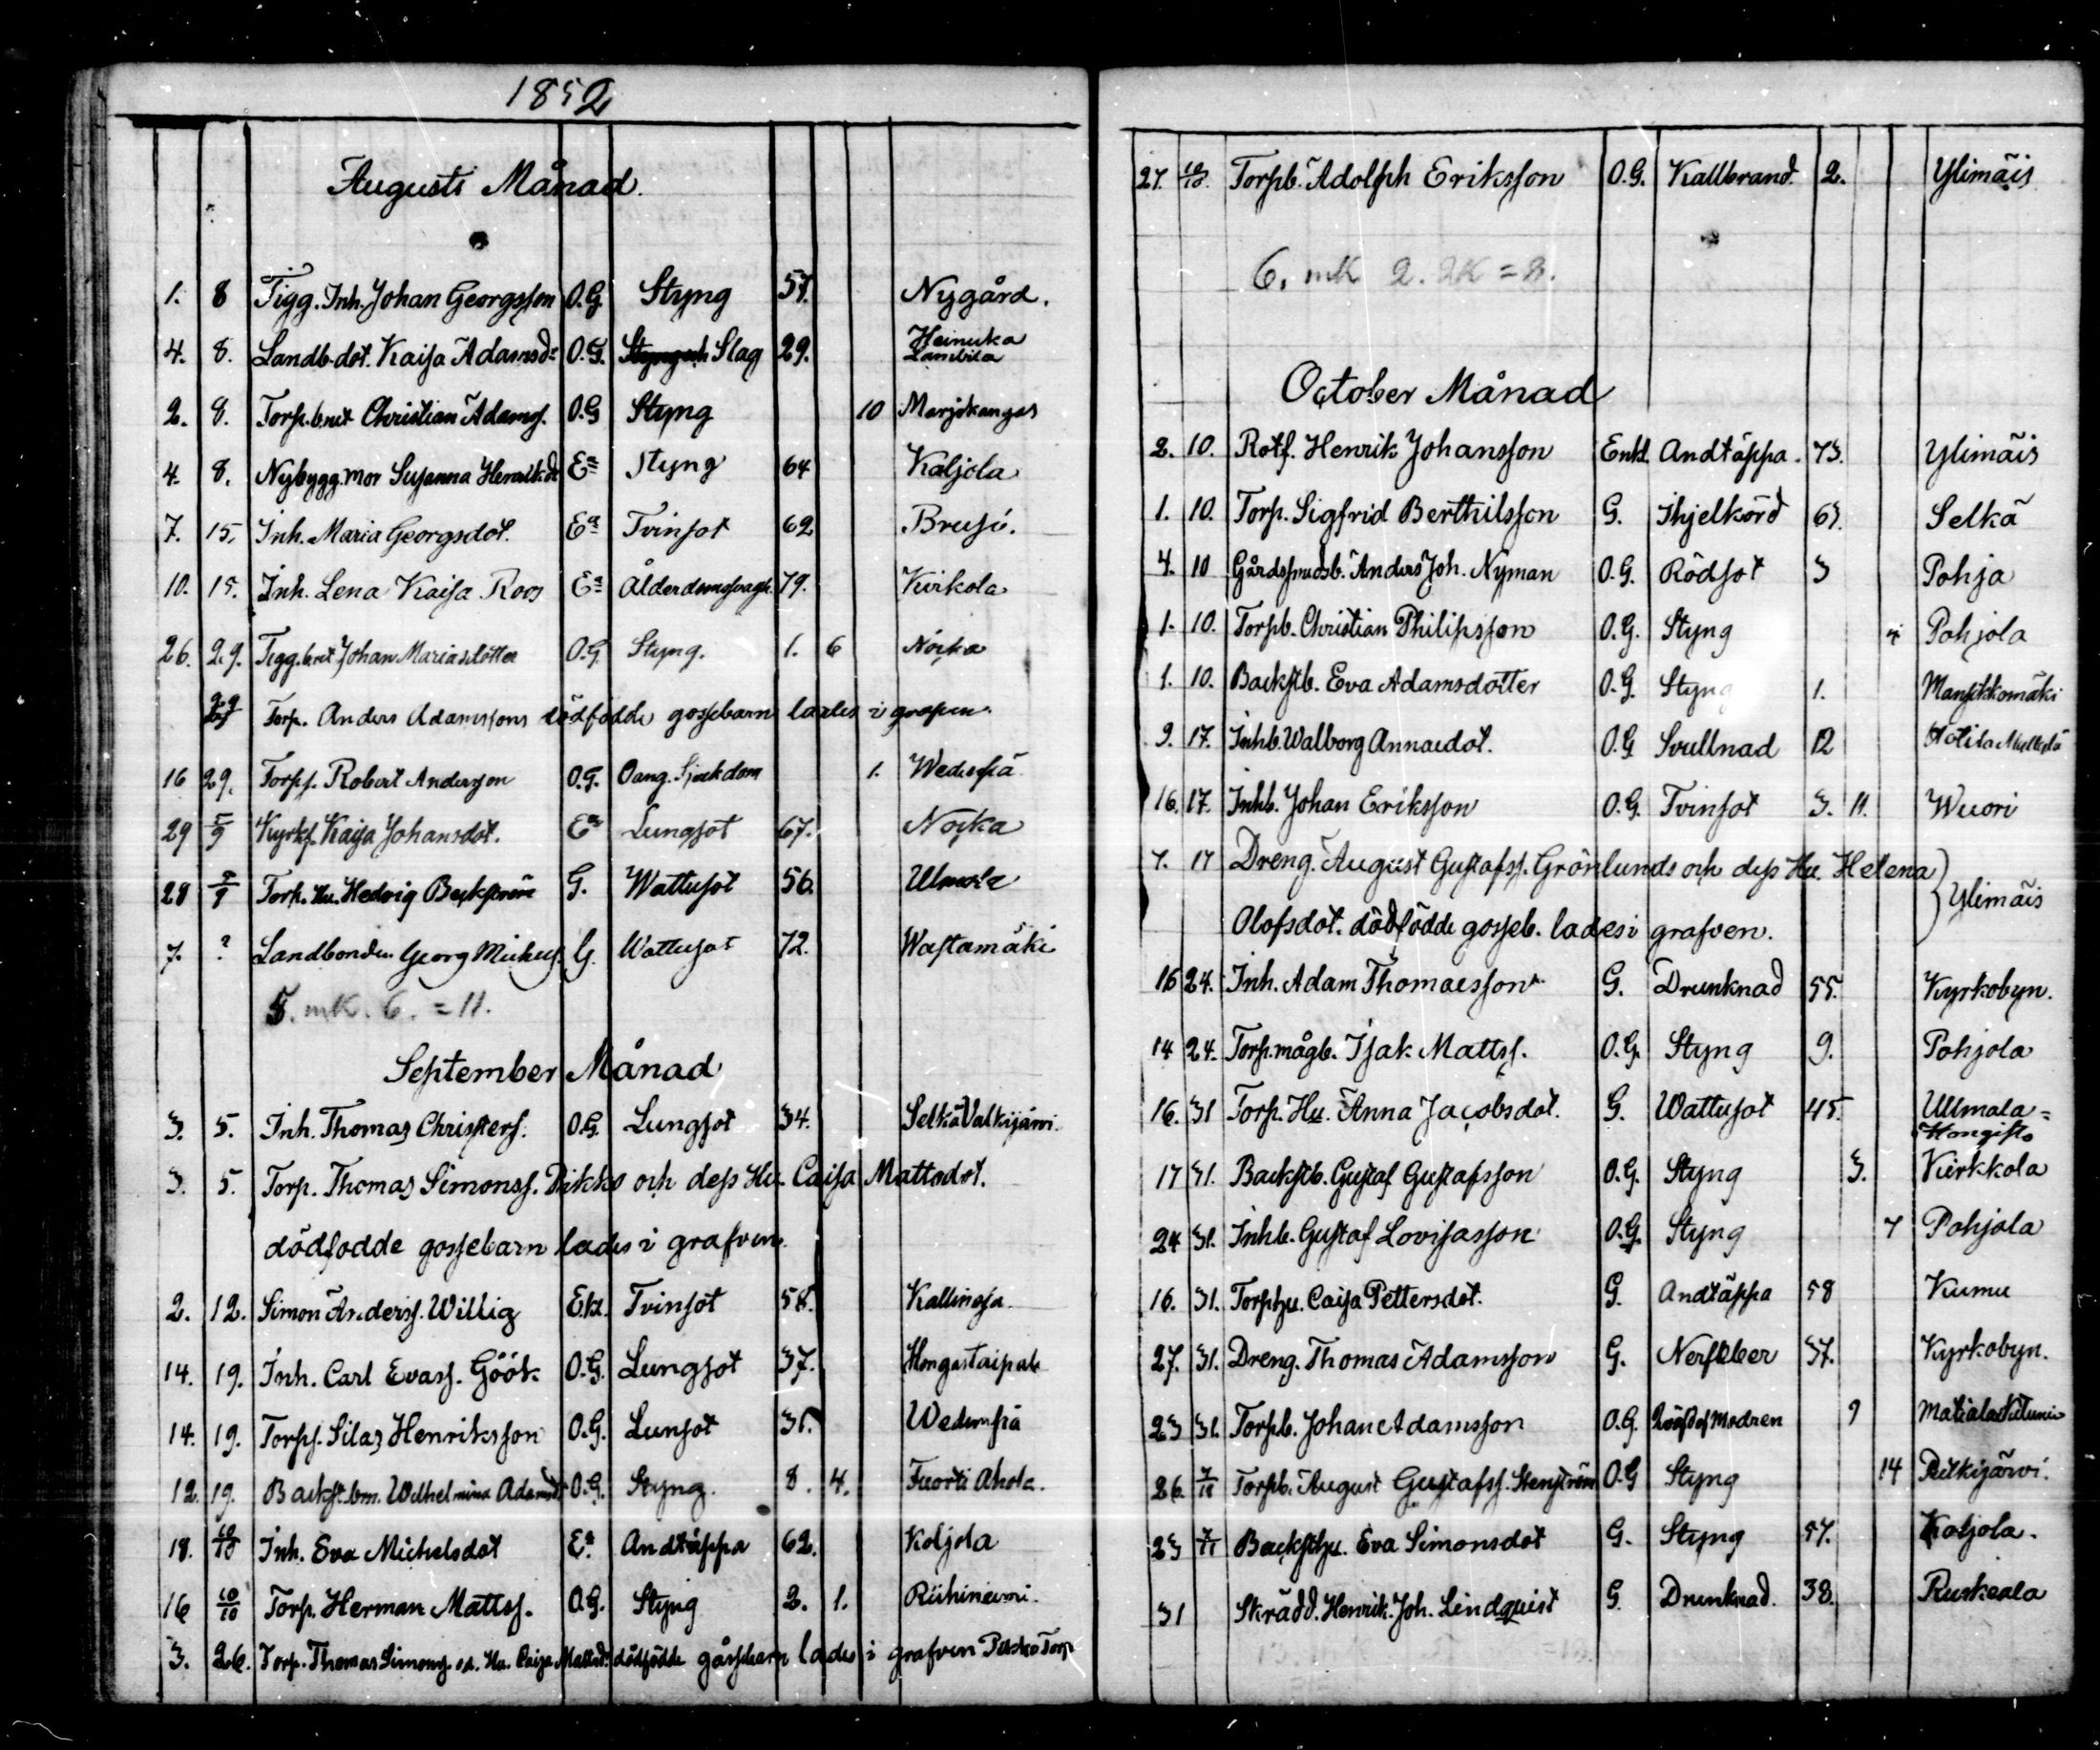 1852
Augusti Månad.
1. 8 Tigg. Inh. Johan Georgsson O.G. Styng 57. Nygård.
4. 8. Landb. dot. Kaisa Adamsdr O.G. Slag 29. Heinuka Lambila
2. 8. Torp. Christian Adamss. O.G Styng 10 Marjokangas
4. 8. Nybygg. mor Susanna Henriksdr Ea Styng 64 Kaljola
7. 15. Inh. Maria Georgsdot. Ea Tvinsot 62
10. 15. Inh. Lena Kaisa Roos Ea 79. Kirkola
26. 29. Johan Mariasdotter O.G. Styng. 1. 6 Noika
29 Torp. Anders Adamssons dödfödde gossebarn lades i grafven.
16 29. Torps. Robert Andersson O.G. Oang. Sjukdom 1. Wedenpä
29 5/9 Kyrkf. Kaisa Johansdot. Ea Lungsot 67. Noika
28 5/9 Torp. Hu. Hedvig Beckström G. Wattusot 56. Ulmala
7. ? Landbonden Georg Michelss. G. Wattusot 72. Wastamäki
5. mk. 6. = 11.
September Månad
3. 5. Inh. Thomas Christers. O.G. Lungsot 34. Selkä Valkijärvi.
3. 5. Torp. Thomas Simonss. Pikko och dess Hu. Caisa Mattsdot.
dödfödde gossebarn lades i grafven.
2. 12. Simon Anderss. Willig Ekl. Tvinsot 58.
14. 19. Inh. Carl Evass. Göök O.G. Lungsot 37. Hongastaipale
14. 19. Torps. Silas Henriksson O.G. Lunsot 31. Wedenpiä
12. 19. Backst. bm. Wilhelmina Adamsdr O.G. Styng. 8. 4. Ahola.
18. 10/10 Inh. Eva Michelsdot Ea. Andtäppa 62. Koljola
16 10/10 Torp. Herman Mattss. O.G. Styng 2. 1. Riihiniemi.
3. 26. Torp. Thomas Simonss. o. s. Hu. Caisa Mattsdr. dödfödde gåssebarn lades i grafven Torp
27. 10/10. Torpb. Adolph Eriksson O.G. Kallbrand. 2. Ylimäis
6. mk 2. 2K = 8.
October Månad
2. 10. Rotf. Henrik Johansson Enkl. Andtäppa. 73. Ylimäis
1. 10. Torp. Sigfrid Berthilsson G. Ihjelkörd 67. Selkä
4. 10 Anders Joh. Nyman O.G. Rödsot 3 Pohja
1. 10. Torpb. Christian Philipsson O.G. Styng Pohjola
1. 10. Backstb. Eva Adamsdotter O.G. Styng 1. Mansikkomäki
9. 17. Inhb. Walborg Annaedot. O.G Svullnad 12
16. 17. Inhb. Johan Eriksson O.G. Tvinsot 3. 11. Wuori
7. 17 Dreng. August Gustafss. Grönlunds och dess Hu. Helena
Olofsdot. dödfödde gosseb. lades i grafven. Ylimäis
16 24. Inh. Adam Thomaesson G. Drunknad 55. Kyrkobyn.
14 24. Torp. mågb. Isak Mattss. O.G. Styng 9. Pohjola
16. 31 Torp. Hu. Anna Jacobsdot. G. Wattusot 45. Ullmala= Hongisto
17 31. Backstb. Gustaf Gustafsson O.G. Styng 3. Kirkkola
24 31. Inhb. Gustaf Lovisasson O.G. Styng 7 Pohjola
16. 31. Torphu. Caisa Pettersdot. G. Andtäppa 58 Kumu
27. 31. Dreng. Thomas Adamsson G. Nerffeber 37. Kyrkobyn.
23 31. Torpb. Johan Adamsson O.G. af Modren 9 Matiala
26. Torpb. August Gustafss. Stenström O.G Styng 14 Pitkijärvi.
23 7/11 Backsthu. Eva Simonsdot G. Styng 57. Koljola.
31 Skrädd. Henrik Joh. Lindquist G. Drunknad. 38. Ruskeala